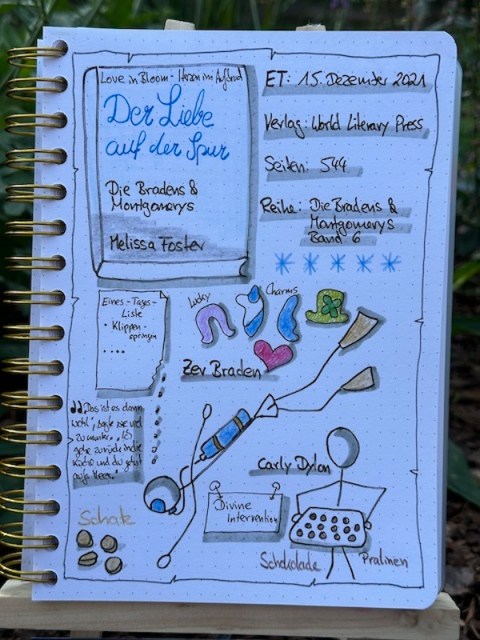 Love in Bloom - Herzen im Aufbruch
Der Liebe
auf der Spur
Die Bradens &
Montgomerys
Melissa Foster
ET: 15. Dezember 2021
Verlag: World Literary Press
Seiten: 544
Reihe: Die Bradens &
Montgomerys
Band 6
Eines-Tages-
Liste
• Klippen-
springen
• ...
Lucky
Charms
Zev Braden
"Das ist es dann
wohl", sagte sie und
zu "Ich
gehe zurück in die
Küche und du gehst
aufs Meer."
Carly Dylan
Divine
Intervention
Schatz
Schokolade
Pralinen